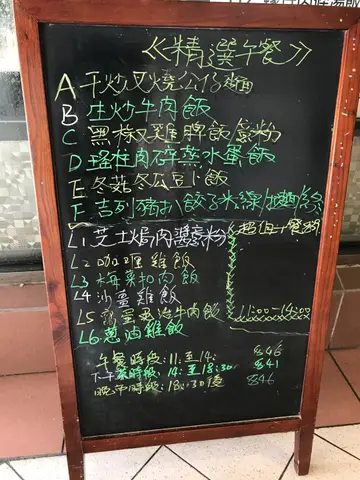 《精選午餐》
A 干炒叉燒公仔麵
B 生炒牛肉飯
C 黑椒雞脾飯/意粉
D 瑤柱肉碎蒸水蛋飯
E 冬菇冬瓜豆卜飯
F 吉列豬扒餃子米線/
L1 芝士焗肉醬意粉
L2 咖喱雞飯
L3 梅菜扣肉飯
L4 沙薑雞飯
L5 牛肉飯
L6 蔥油雞飯
11:00-14:00
午餐時段:11:至14: $46
下午茶時段:14:至18:30 $41
晚市時段:18:30後 $46